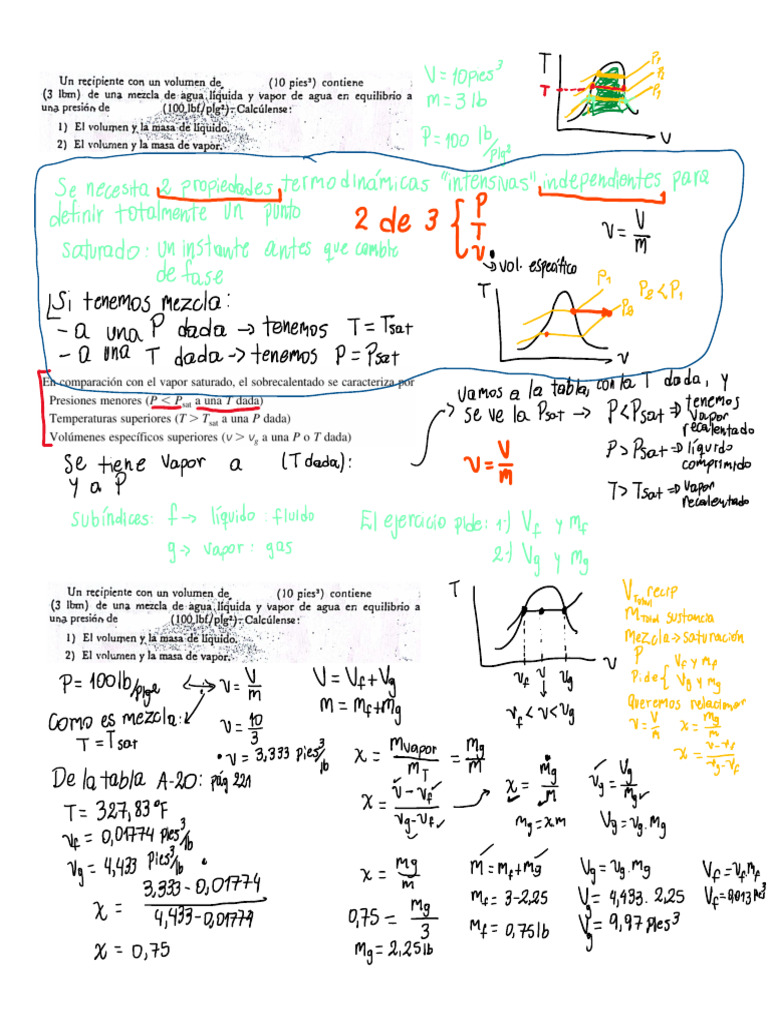 Un recipiente con un volumen de (10 pies³) contiene
(3 lbm) de una mezcla de agua líquida y vapor de agua en equilibrio a
una presión de (100 lbf/plg²). Calcúlense:
1) El volumen y la masa de líquido.
2) El volumen y la masa de vapor.
V=10pies³
m=3 lb
P=100 lb/plg²
T
T
P₁
P₂
P₃
v
Se necesita 2 propiedades termodinámicas "intensivas" independientes para
definir totalmente un punto
2 de 3 { P
T
v
vol. específico
v = V/m
saturado: un instante antes que cambie
de fase
Si tenemos mezcla:
- a una P dada → tenemos T = Tsat
- a una T dada → tenemos P = Psat
T
P₁
P₂
P₂ < P₁
v
En comparación con el vapor saturado, el sobrecalentado se caracteriza por
Presiones menores (P < Psat a una T dada)
Temperaturas superiores (T > Tsat a una P dada)
Volúmenes específicos superiores (v > vg a una P o T dada)
Se tiene vapor a (T dada):
y a P
vamos a la tabla, con la T dada, y
se ve la Psat → P<Psat ⇒ tenemos vapor recalentado
P>Psat ⇒ líquido comprimido
T>Tsat ⇒ vapor recalentado
v = V/m
Subíndices: f → líquido : fluido
g → vapor : gas
El ejercicio pide: 1·) Vf y mf
2·) Vg y mg
Un recipiente con un volumen de (10 pies³) contiene
(3 lbm) de una mezcla de agua líquida y vapor de agua en equilibrio a
una presión de (100 lbf/plg²). Calcúlense:
1) El volumen y la masa de líquido.
2) El volumen y la masa de vapor.
T
v
vf v vg
vf < v < vg
VTotal recip
mTotal sustancia
mezcla → saturación
P
Pide { Vf y mf
Vg y mg
Queremos relacionar
v = V/m x = mg/m
x = v-vf/vg-vf
P=100lb/plg² ↔ v = V/m
Como es mezcla:
T = Tsat
v = 10/3
• v = 3,333 pies³/lb
V = Vf + Vg
m = mf + mg
x = mvapor/mT = mg/m
x = v-vf/vg-vf → x = mg/m
mg = x.m
vg = Vg/mg
Vg = vg.mg
De la tabla A-20: pág 221
T = 327,83 °F
vf = 0,01774 pies³/lb
vg = 4,433 pies³/lb
x = 3,333 - 0,01774/4,433 - 0,01774
x = 0,75
x = mg/m
0,75 = mg/3
mg = 2,25lb
m = mf + mg
mf = 3 - 2,25
mf = 0,75 lb
Vg = vg.mg
Vg = 4,433 . 2,25
Vg = 9,97 pies³
Vf = vf.mf
Vf = 0,013 pie³